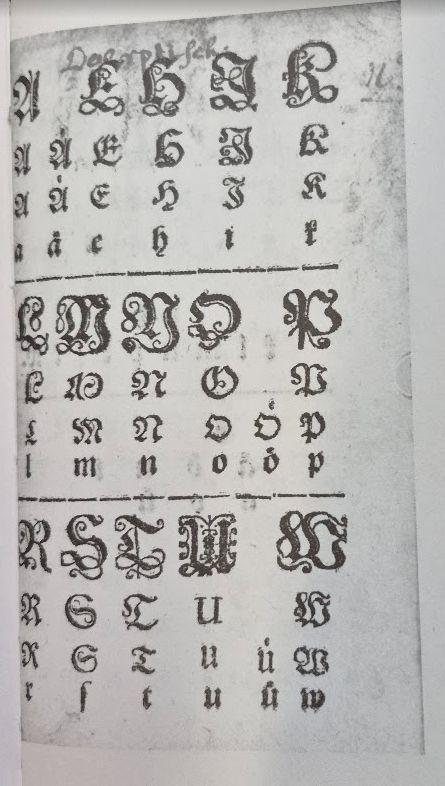 A E H I K
A Å E H I K
A Å E H I K
a å e h i k
L M N O P
L M N O P
L M N O Ö P
l m n o ö p
R S T U W
R S T U W
R S T U Ü W
r ſ t u ü w